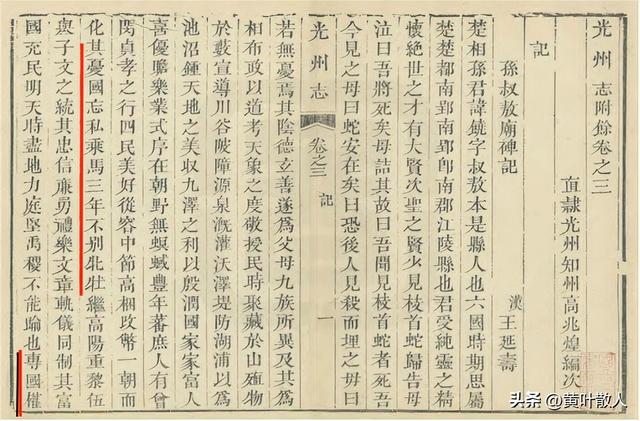 光州志附餘卷之三
直隸光州知州高兆煌編次
記
孫叔敖廟碑記 漢 王延壽
楚相孫君諱饒字叔敖本是縣人也六國時期思屬
楚楚都南郢南郢即南郡江陵縣也君受純靈之精
懷絕世之才有大賢次聖之賢少見枝首蛇歸告母
泣曰吾將死矣母詰其故曰吾聞見枝首蛇者死吾
今見之母曰蛇安在矣曰恐後人見殺而埋之母曰
光州志 卷之三 記 一
若無憂焉其陰德玄善遂為父母九族所異及其為
相布政以道考天象之度敬授民時聚藏於山殖物
於藪宣導川谷陂障源泉漑灌沃澤堤防湖浦以為
池沼鍾天地之美收九澤之利以殷潤國家家富人
喜優贍樂業式序在朝野無螟蜮豐年蕃庶人有曾
閔貞孝之行四民美好從容中節高梱改幣一朝而
化其憂國忘私乘馬三年不别牝牡繼高陽重黎伍
與子文之統其忠信廉勇禮樂文章軌儀同制其富
國充民明天時盡地力庭堅禹稷不能踰也專國權
头条 @黄叶散人